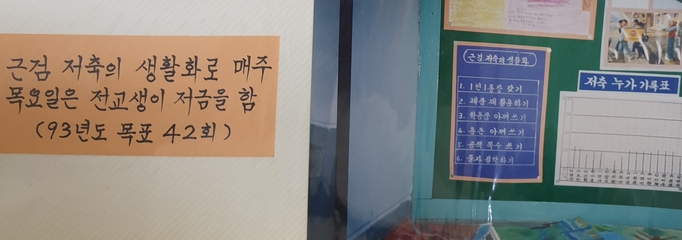 근검 저축의 생활화로 매주
목요일은 전교생이 저금을 함
(93년도 목표 42회)
근검 저축의 생활화
1. 1인 1통장 갖기
2. 폐품 재활용하기
3. 학용품 아껴쓰기
4. 용돈 아껴쓰기
5. 공책 쪽수 쓰기
6. 물자 절약하기
저축 누가 기록표